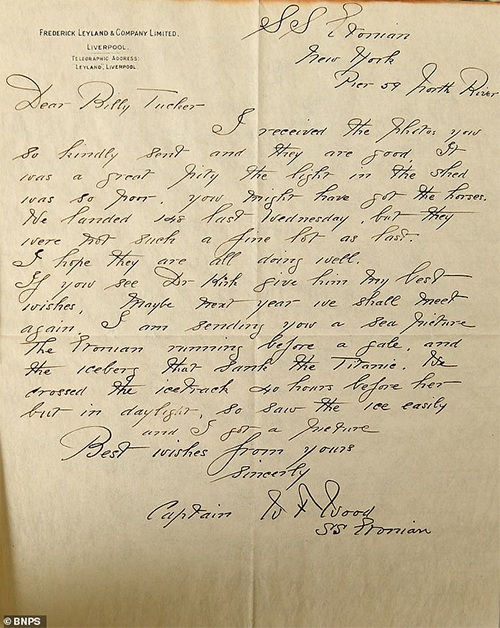 FREDERICK LEYLAND & COMPANY LIMITED.
LIVERPOOL.
TELEGRAPHIC ADDRESS:
LEYLAND, LIVERPOOL.
SS Etonian
New York
Pier 59 North River
Dear Billy Tucker
I received the photos you
so kindly sent and they are good. It
was a great pity the light in the shed
was so poor. you might have got the horses.
We landed 148 last Wednesday, but they
were not such a fine lot as last.
I hope they are all doing well.
If you see Dr Kirk give him my best
wishes, Maybe next year we shall meet
again. I am sending you a sea picture
The Etonian running before a gale, and
the iceberg that sank the Titanic. We
crossed the ice track 40 hours before her
but in daylight, so saw the ice easily
and I got a picture
Best wishes from yours
sincerly
Captain W F Wood
SS Etonian
© BNPS